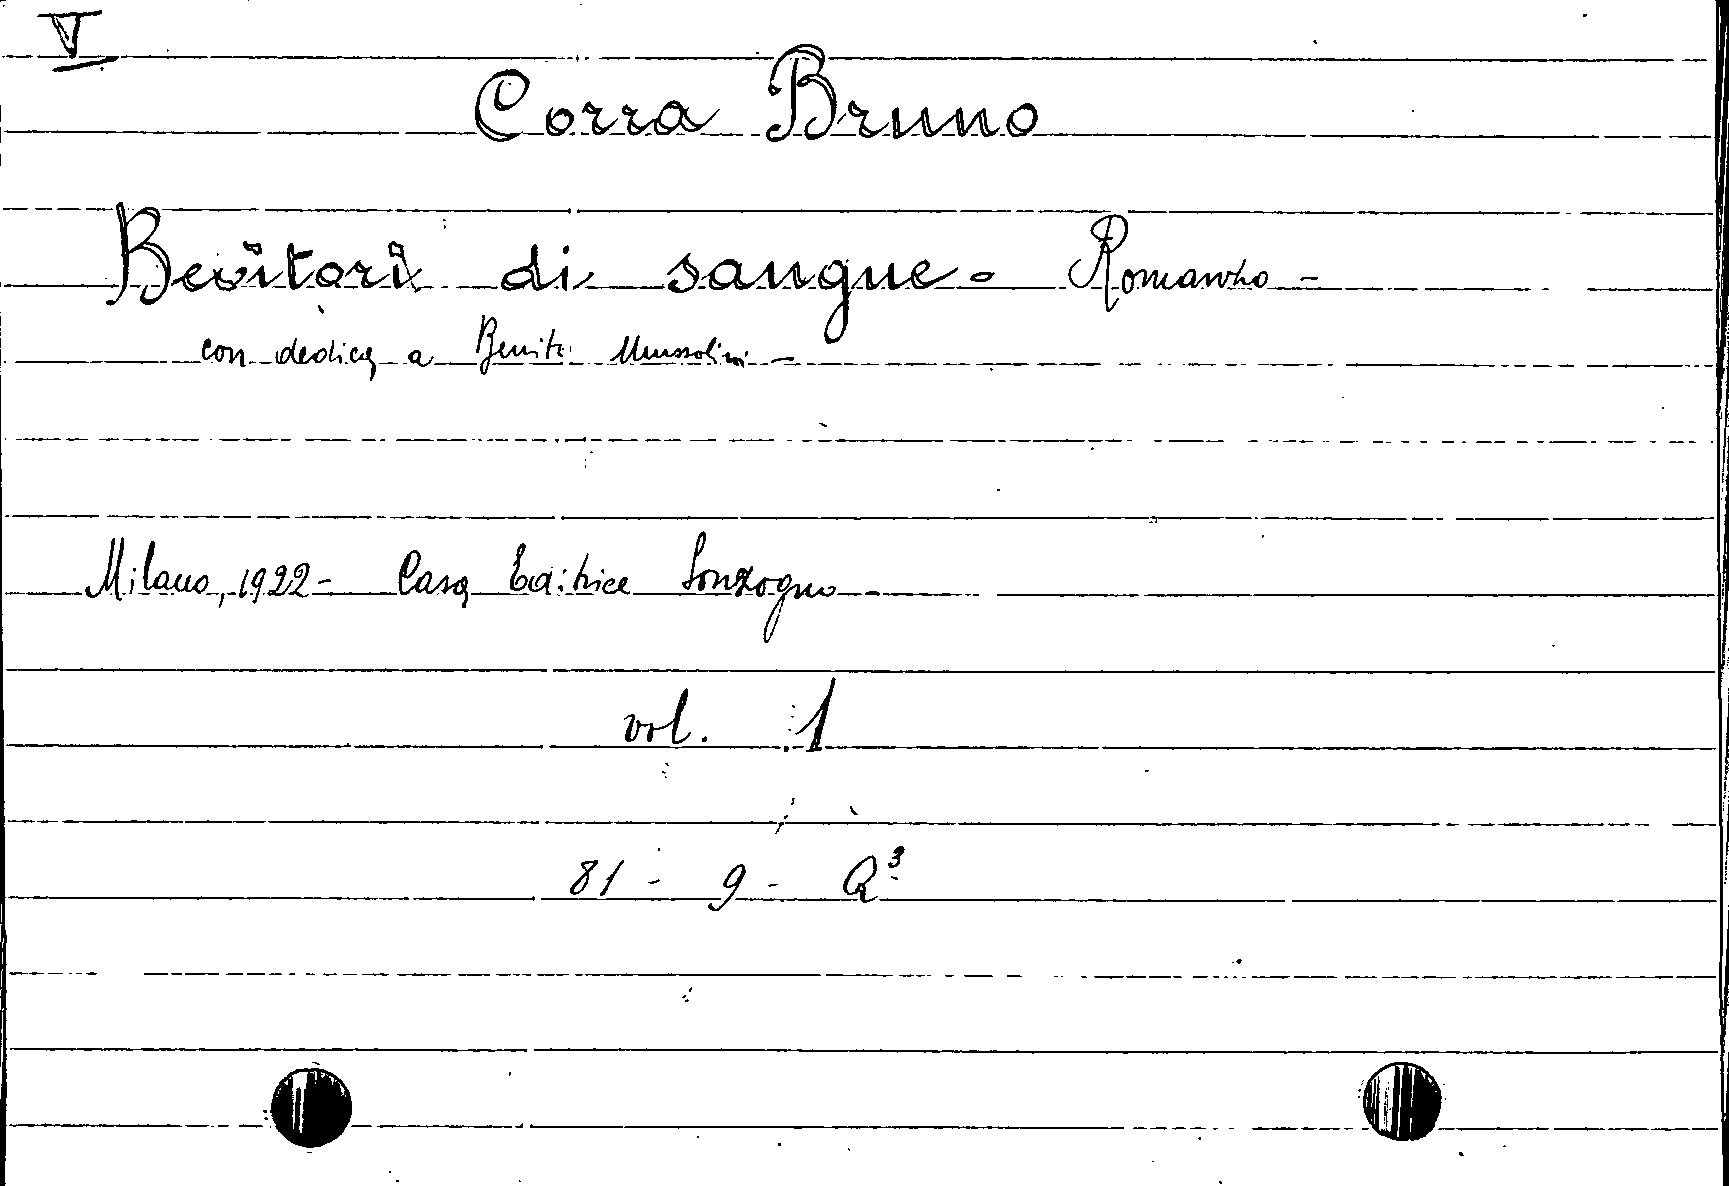 V
Corra Bruno
Bevitori di sangue. Romanzo -
con dedica a Benito Mussolini -
Milano, 1922 - Casa Editrice Sonzogno -
vol. 1
81 - 9 - Q³